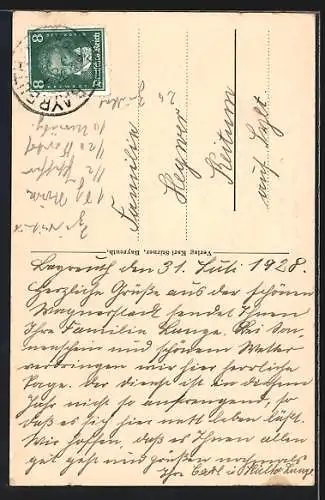 8 Deutsches Reich 8
BAYREUTH
Familie
Heymer
Keitum
auf Sylt
Verlag Karl Stirner, Bayreuth.
Bayreuth den 31. Juli. 1928.
Herzliche Grüße aus der schönen
Wagnerstadt sendet Ihnen
Ihre Familie Lange. Bei Son-
nenschein und schönem Wetter
verbringen wir hier herrliche
Tage. Der Dienst ist in diesem
Jahr nicht so anstrengend, so
daß es sich hier nett leben läßt.
Wir hoffen, daß es Ihnen allen
gut geht und grüßen nochmals
Ihre Carl u. Lange